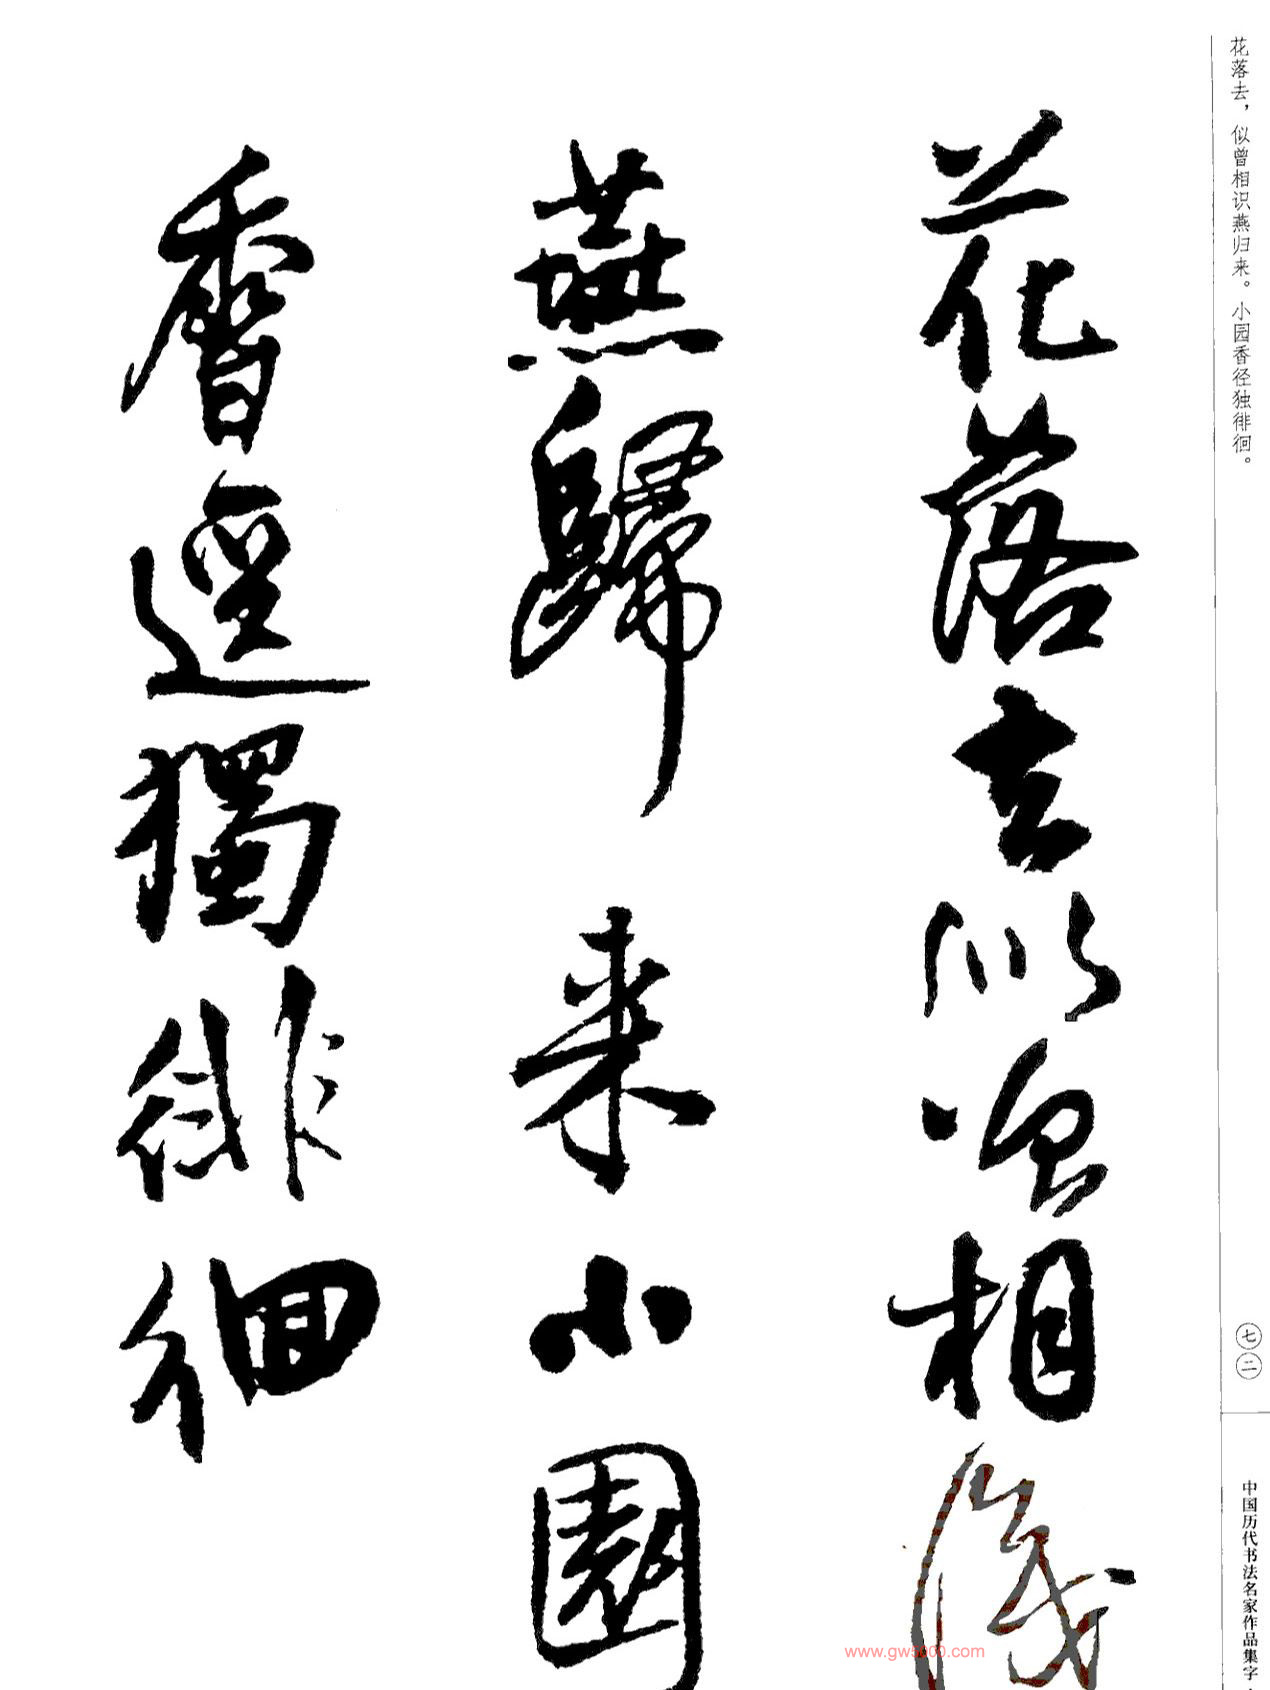 花落去，似曾相识燕归来。小园香径独徘徊。
花落去似曾相識
燕歸来小園
香逕獨徘徊
七二
中国历代书法名家作品集字·
www.gw5000.com